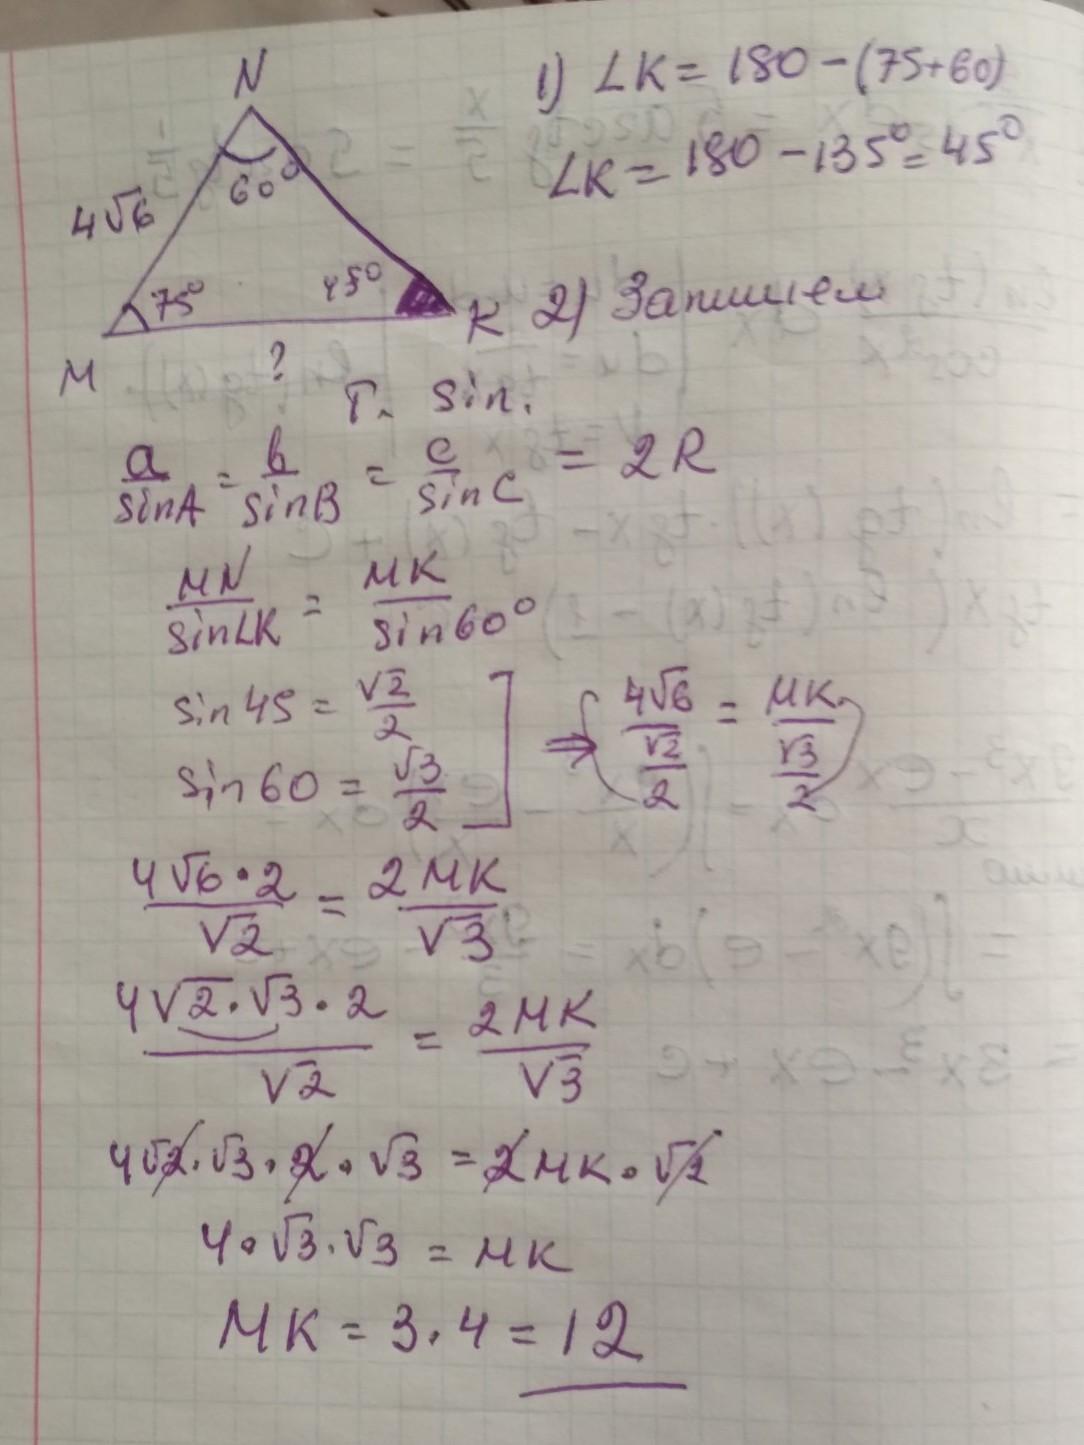 N
4√6
60°
75°
45°
M
K
?
1) ∠K = 180 - (75+60)
∠K = 180 - 135° = 45°
2) Запишем
Т. sin.
a/sinA = b/sinB = c/sinC = 2R
MN/sin∠K = MK/sin60°
sin45 = √2/2
sin60 = √3/2
⇒ 4√6/(√2/2) = MK/(√3/2)
4√6·2/√2 = 2MK/√3
4√2·√3·2/√2 = 2MK/√3
4√2·√3·2·√3 = 2MK·√2
4·√3·√3 = MK
MK = 3·4 = 12